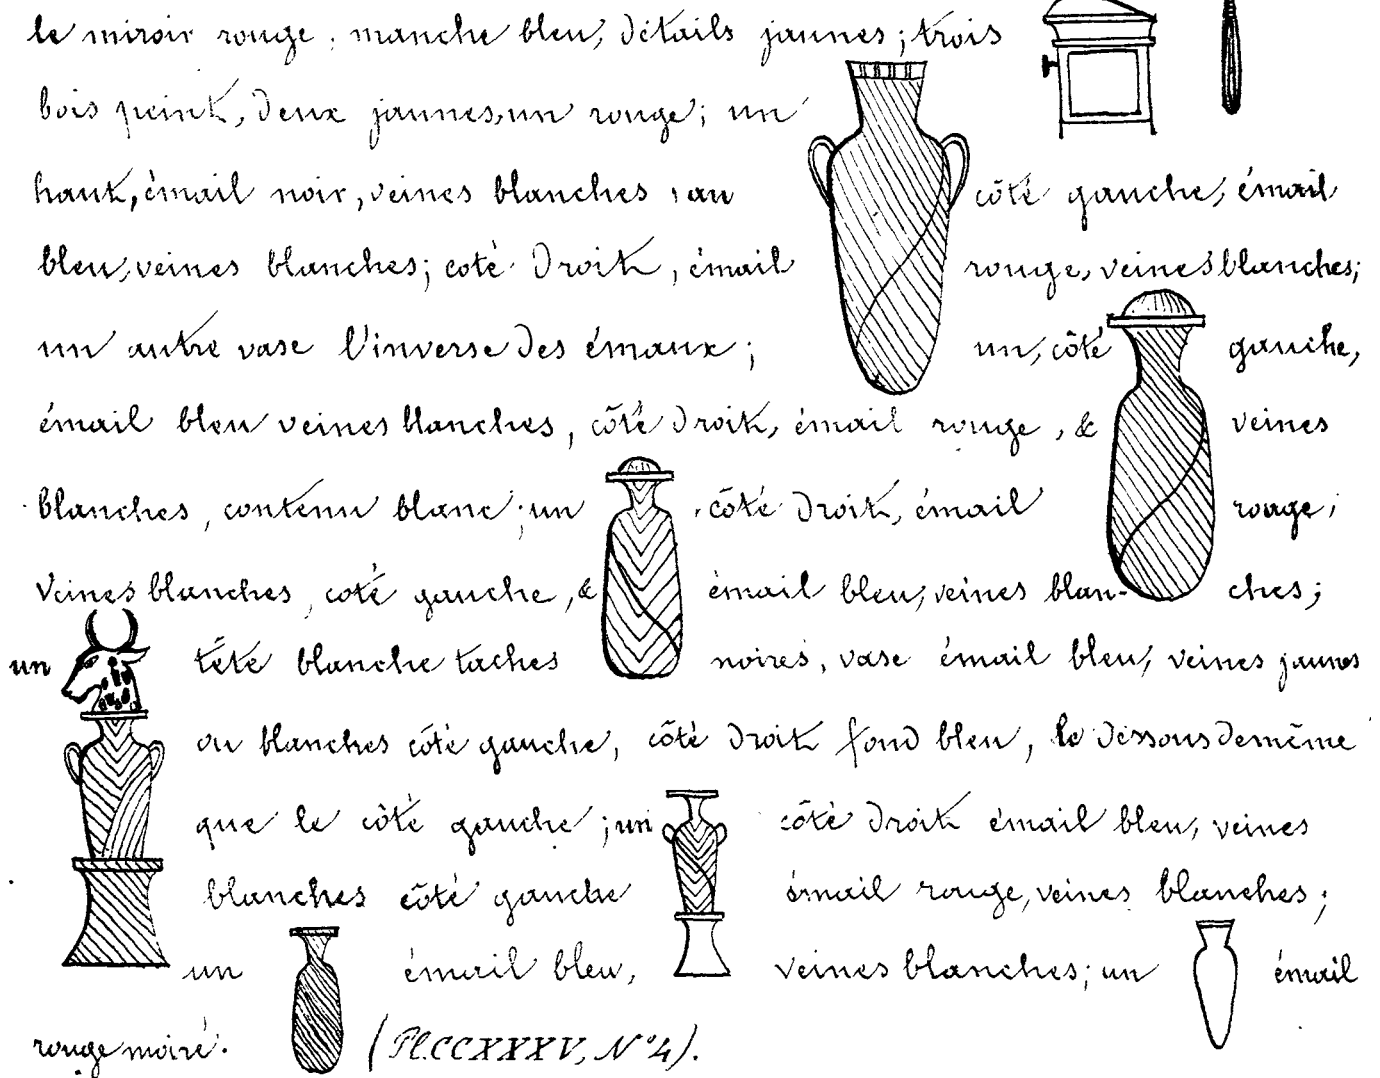 le miroir rouge, manche bleu, détails jaunes; trois
bois peint, deux jaunes, un rouge; un
haut, émail noir, veines blanches, au côté gauche, émail
bleu, veines blanches; coté droit, émail rouge, veines blanches;
un autre vase l'inverse des émaux; un, côté gauche,
émail bleu veines blanches, côté droit, émail rouge, & veines
blanches, contenu blanc; un, côté droit, émail rouge;
veines blanches, coté gauche, & émail bleu, veines blan- ches;
un tété blanche taches noires, vase émail bleu, veines jaunes
ou blanches côté gauche, côté droit fond bleu, le dessous de même
que le côté gauche; un côté droit émail bleu, veines
blanches côté gauche émail rouge, veines blanches;
un émail bleu, veines blanches; un émail
rouge moiré. (Pl. CCXXXV, N° 4).